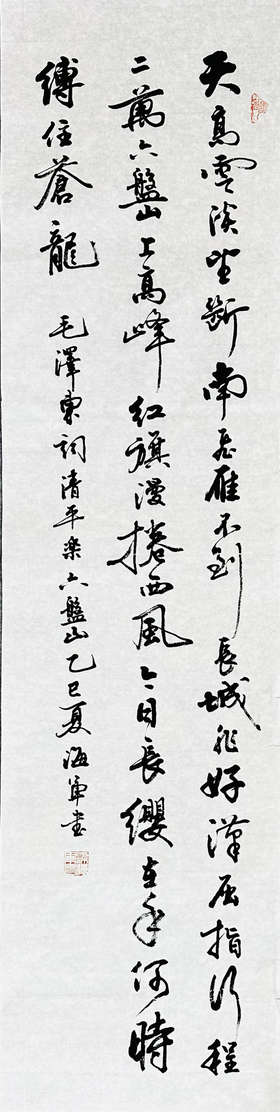 天高雲淡望斷南飛雁不到長城非好漢屈指行程
二萬六盤山上高峰红旗漫捲西風今日長纓在手何時
縛住蒼龍 毛澤東詞清平楽六盤山乙巳夏海軍書